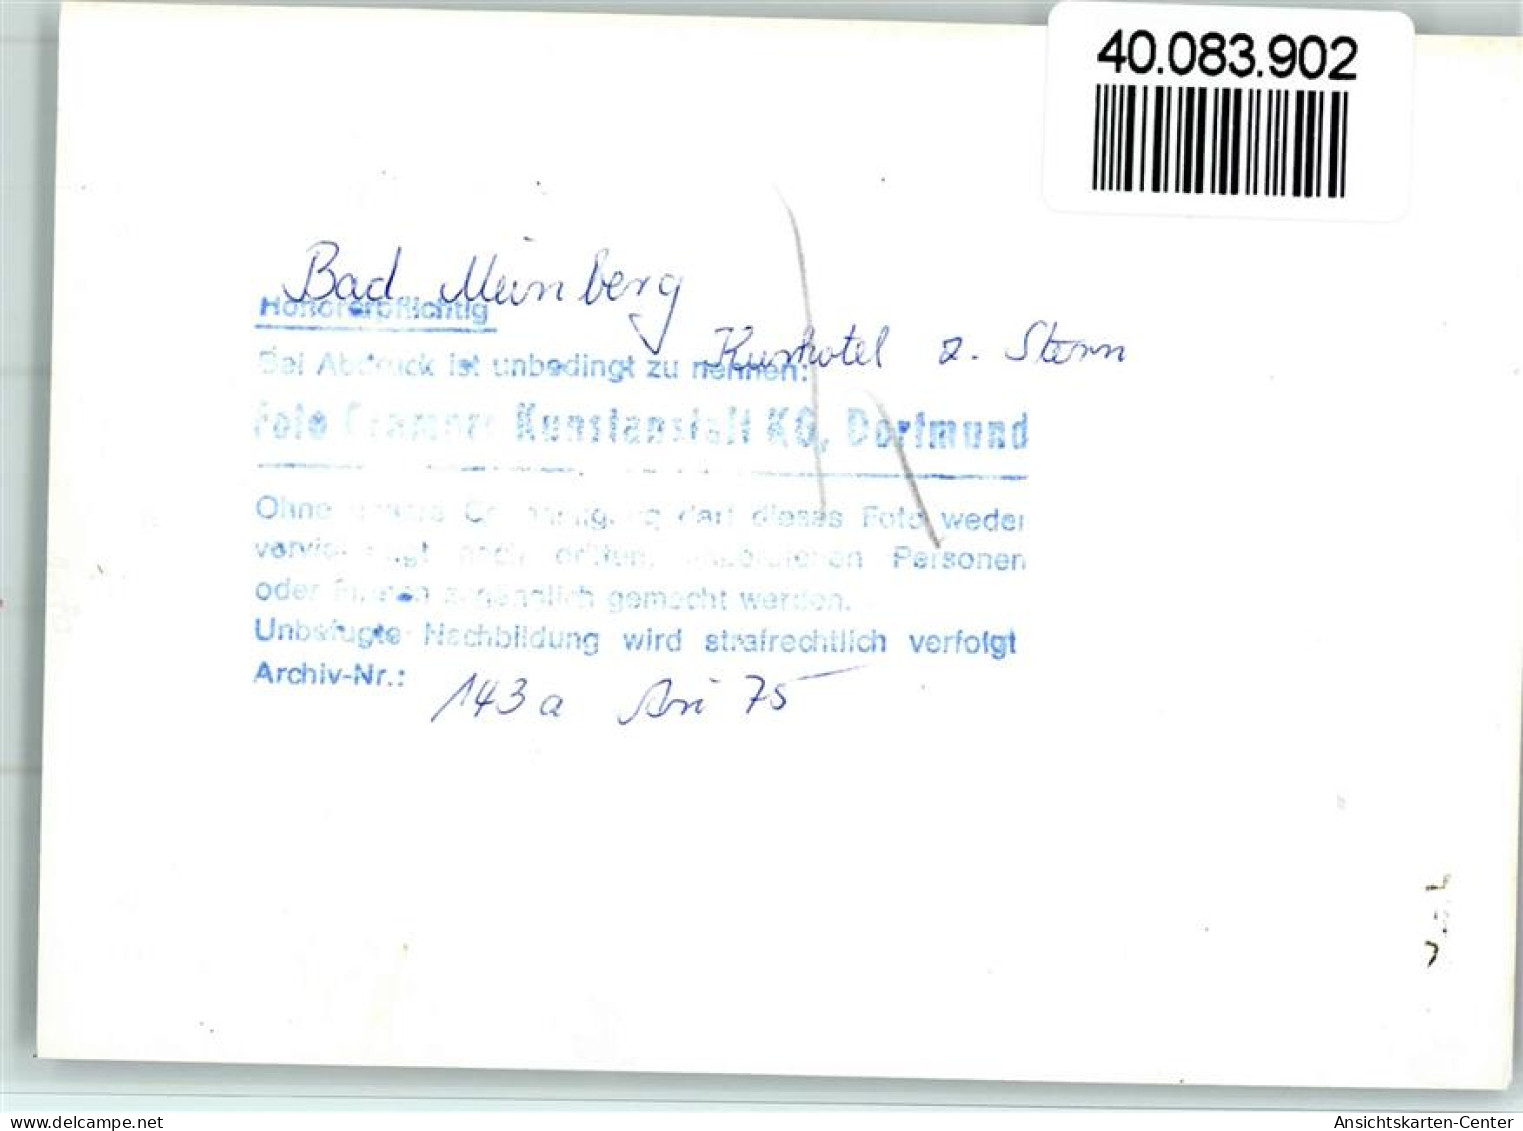 40.083.902
Bad Meinberg
Honorarpflichtig
Kurhotel z. Stern
Bei Abdruck ist unbedingt zu nennen:
Foto Cramers Kunstanstalt KG, Dortmund
Ohne unsere Genehmigung darf dieses Foto weder
vervielfältigt noch dritten, unberufenen Personen
oder Firmen zugänglich gemacht werden.
Unbefugte Nachbildung wird strafrechtlich verfolgt
Archiv-Nr.: 143a 75
delcampe.net
Ansichtskarten-Center